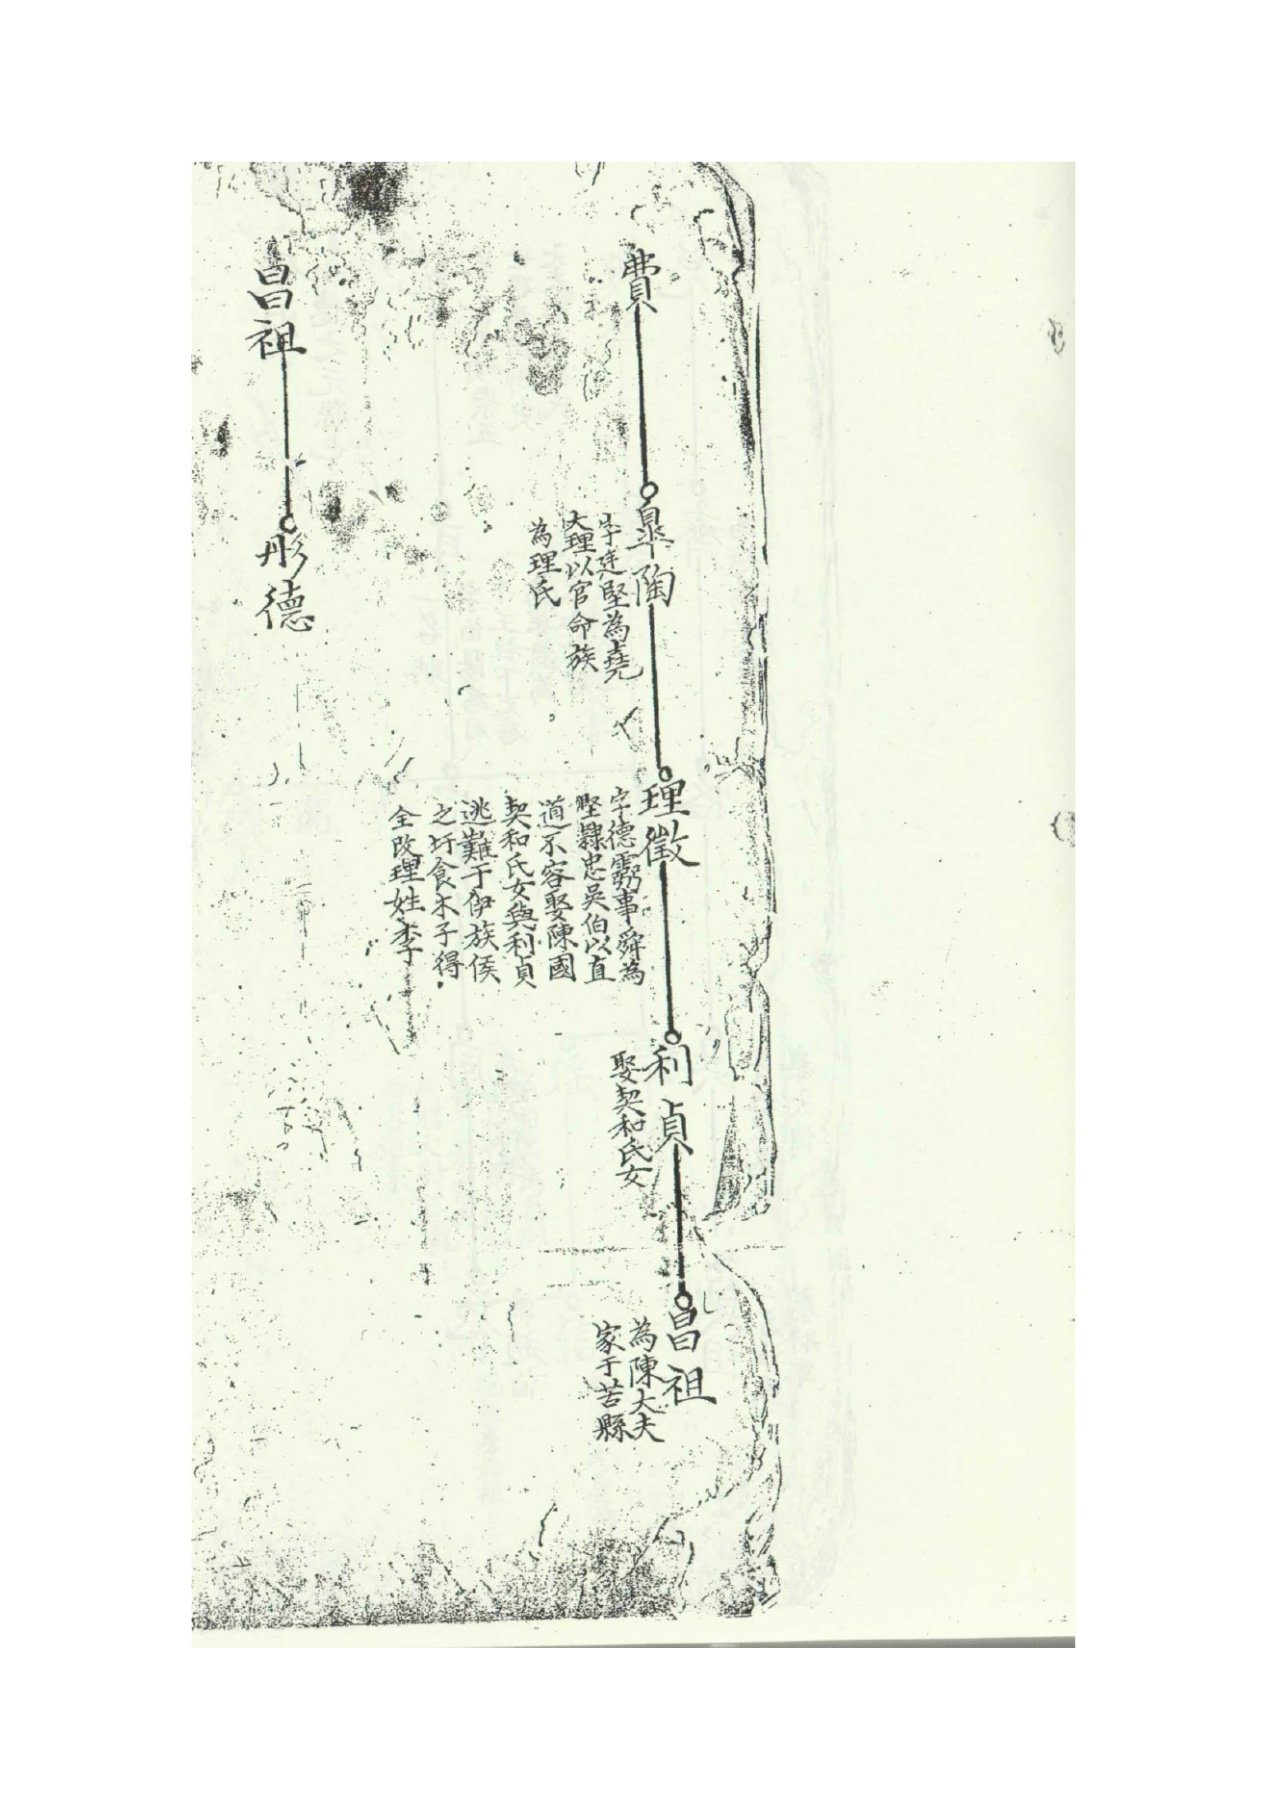 費
皋陶
字廷堅為堯
大理以官命族
為理氏
理徵
字德靈事舜為
堅隸忠吳伯以直
道不容娶陳國
契和氏女與利貞
逃難于伊族侯
之圩食木子得
全改理姓李
利貞
娶契和氏女
昌祖
為陳大夫
家于苦縣
昌祖
彤德